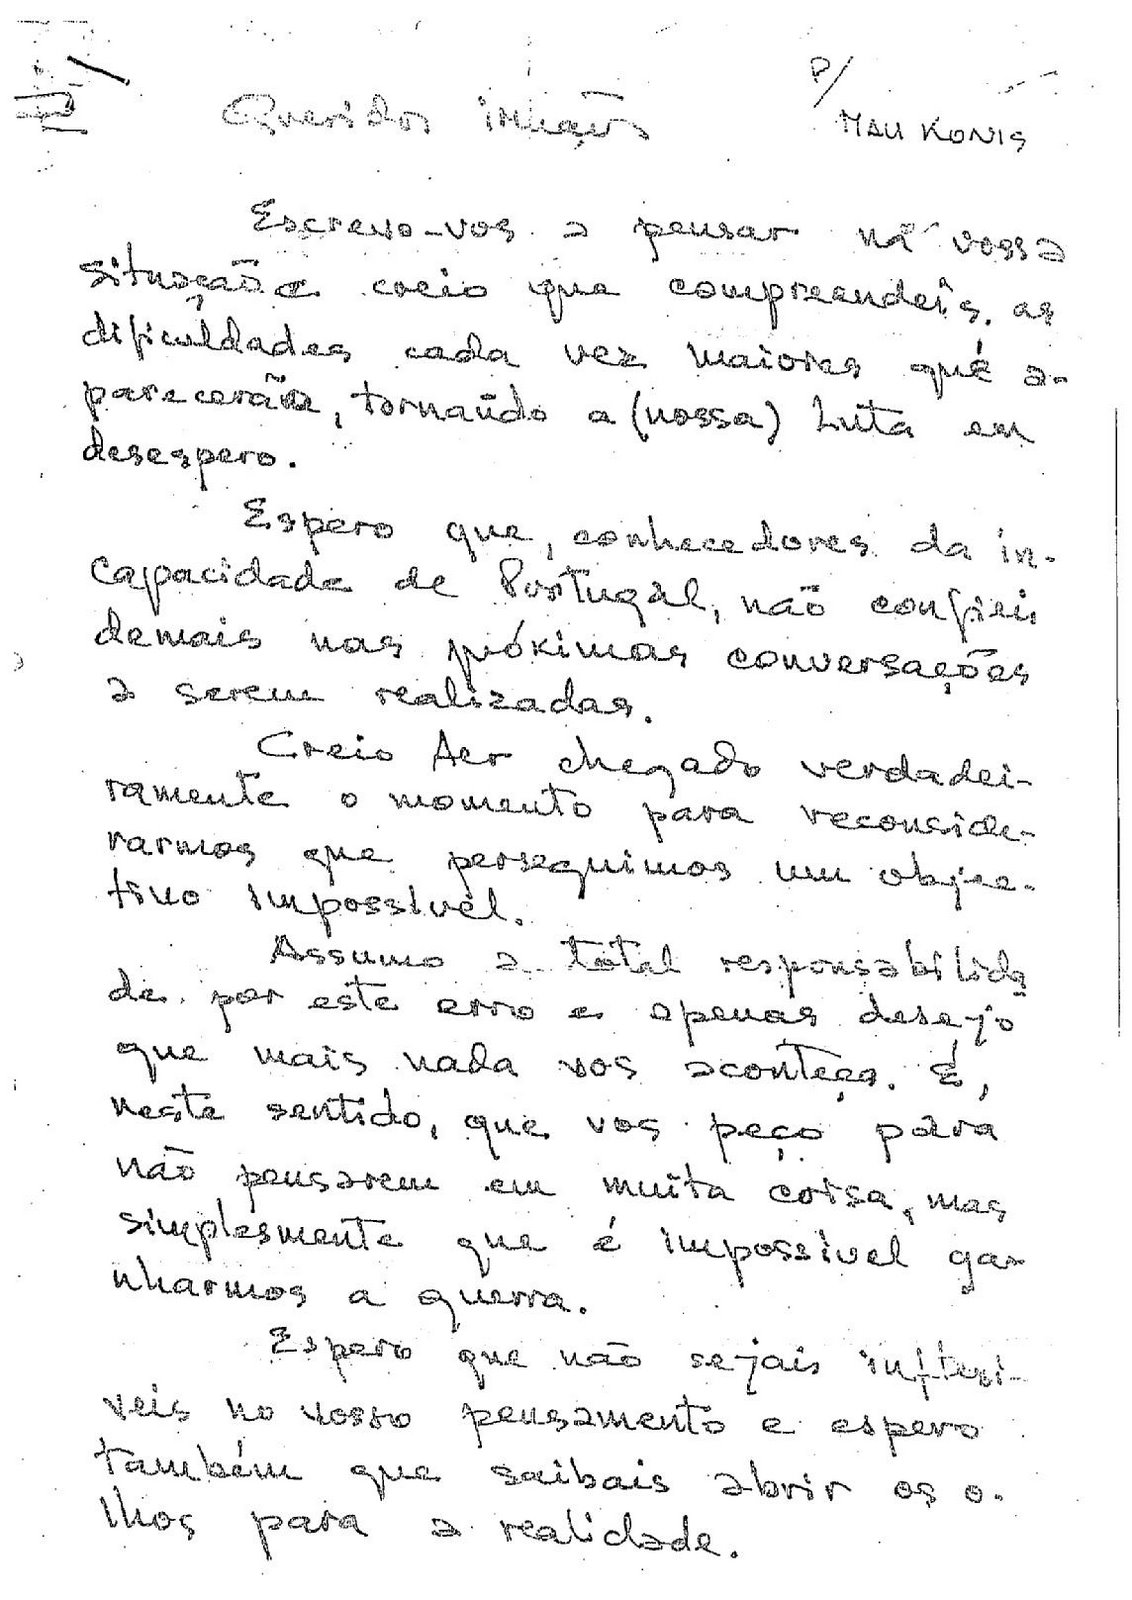 P/
MAU KONIS
Queridos irmãos
Escrevo-vos a pensar na vossa
situação e creio que compreendeis as
dificuldades cada vez maiores que a-
parecerão, tornando a (nossa) Luta em
desespero.
Espero que, conhecedores da in-
capacidade de Portugal, não confieis
demais nas próximas conversações
a serem realizadas.
Creio ter chegado verdadei-
ramente o momento para reconside-
rarmos que perseguimos um objec-
tivo impossível.
Assumo a total responsabilida
de por este erro e apenas desejo
que mais nada vos aconteça. É,
neste sentido, que vos peço para
não pensarem em muita coisa, mas
simplesmente que é impossível ga-
nharmos a guerra.
Espero que não sejais inflexi-
veis no vosso pensamento e espero
também que saibais abrir os o-
lhos para a realidade.